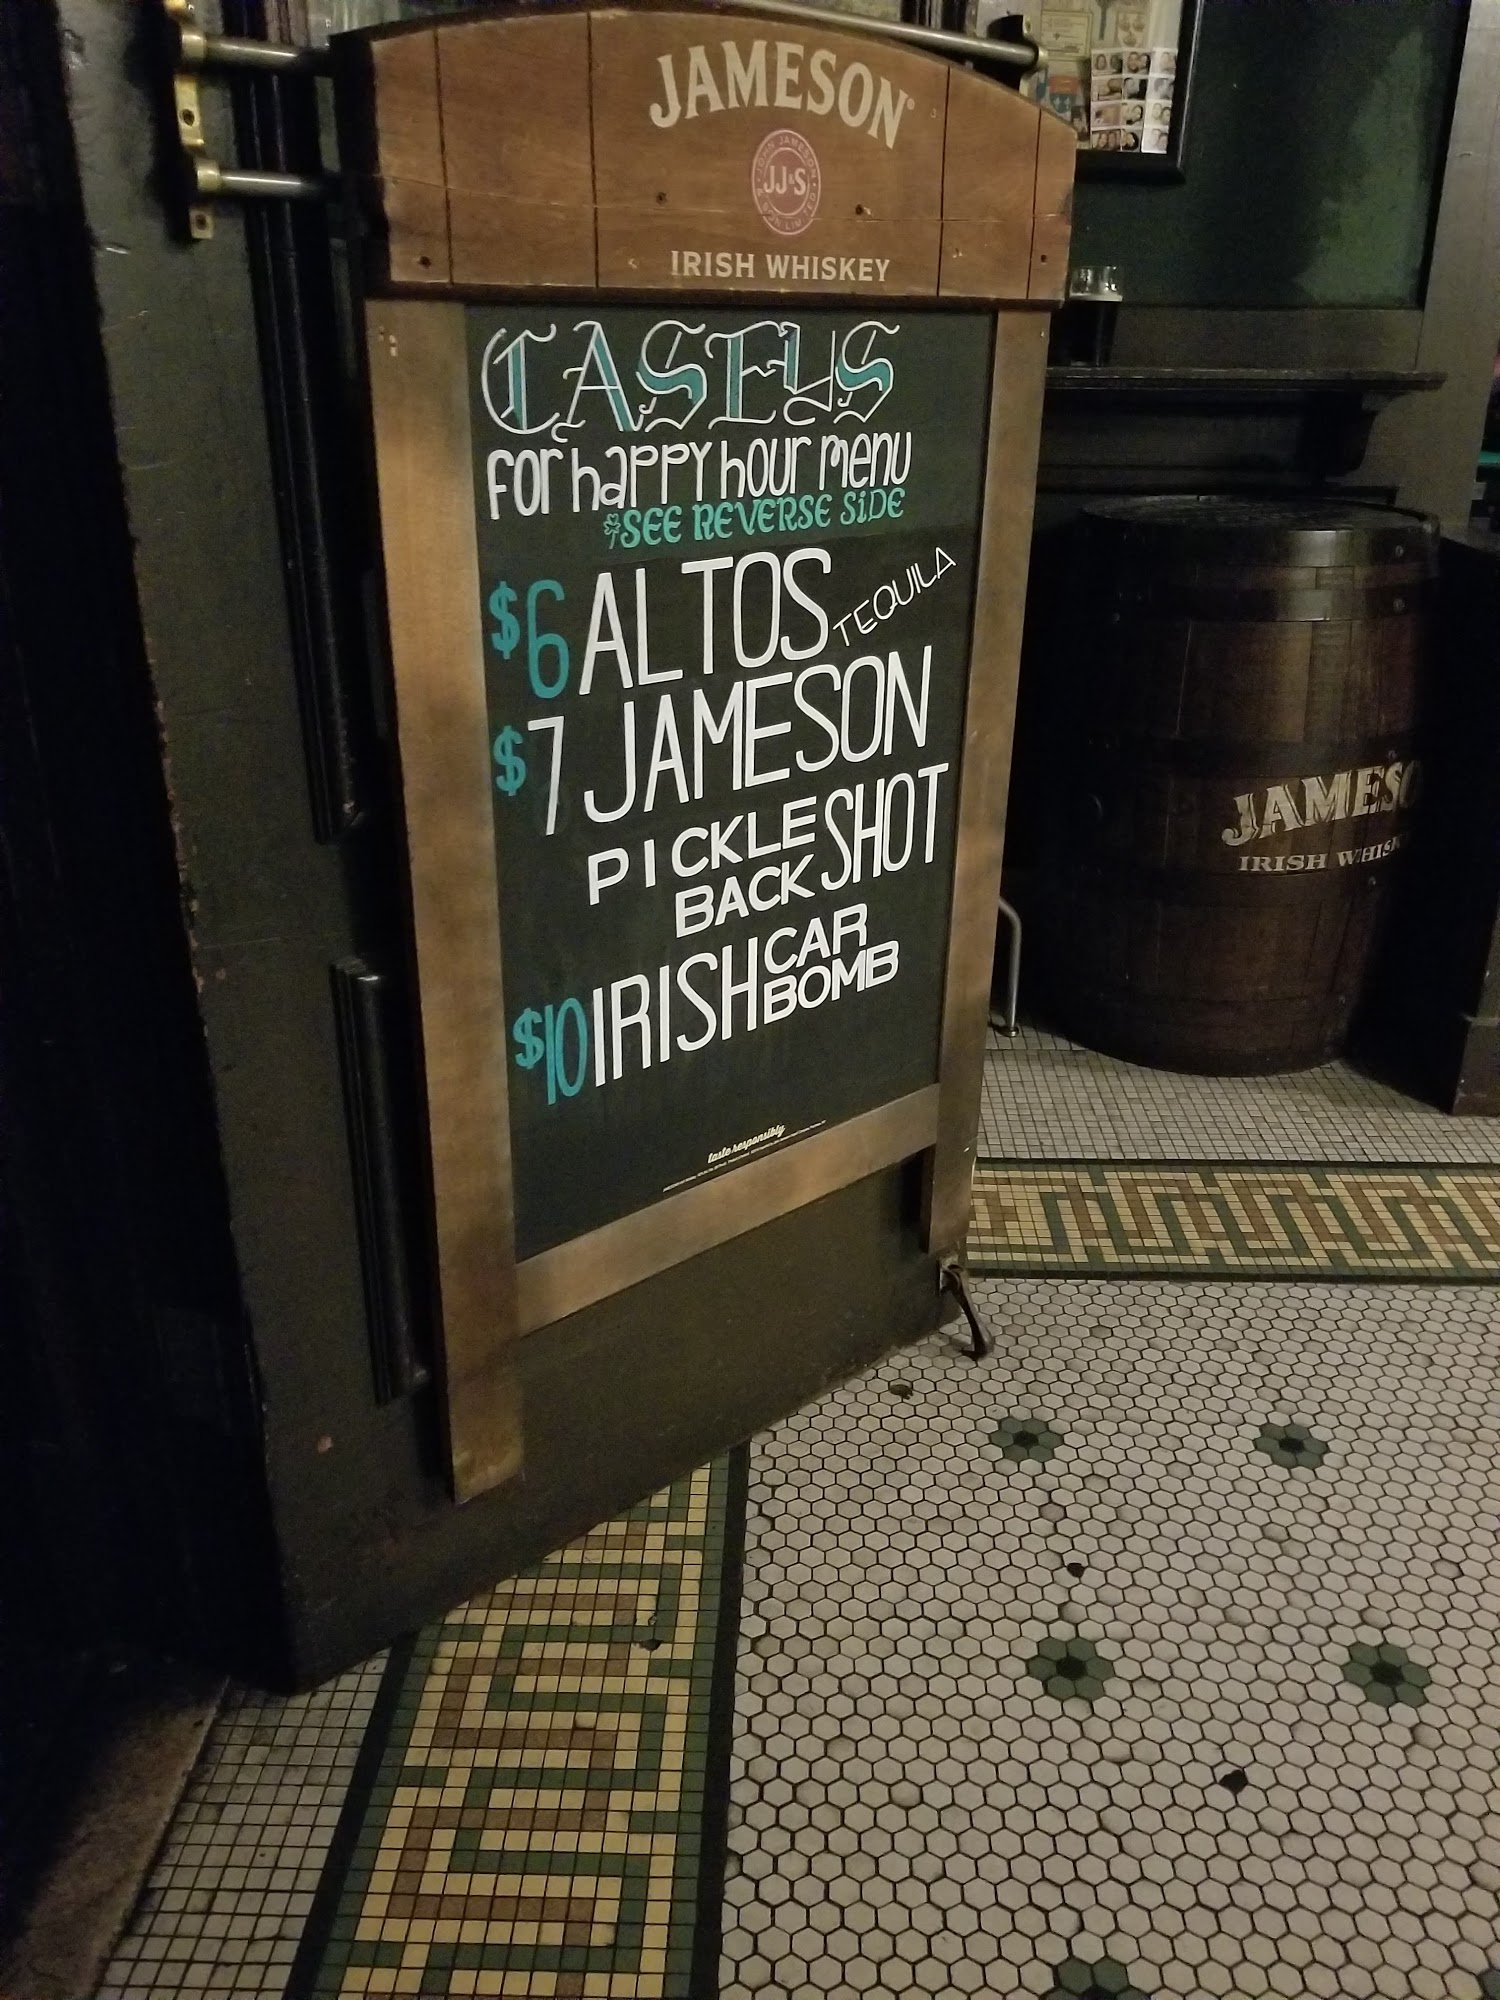 JAMESON®
JOHN JAMESON
JJ&S
& SON LIMITED
IRISH WHISKEY
CASEYS
for happy hour menu
*SEE REVERSE SiDE
$6 ALTOS TEQUILA
$7 JAMESON
PICKLE BACK SHOT
$10 IRISH CAR BOMB
taste responsibly
JAMESO
IRISH WHISK